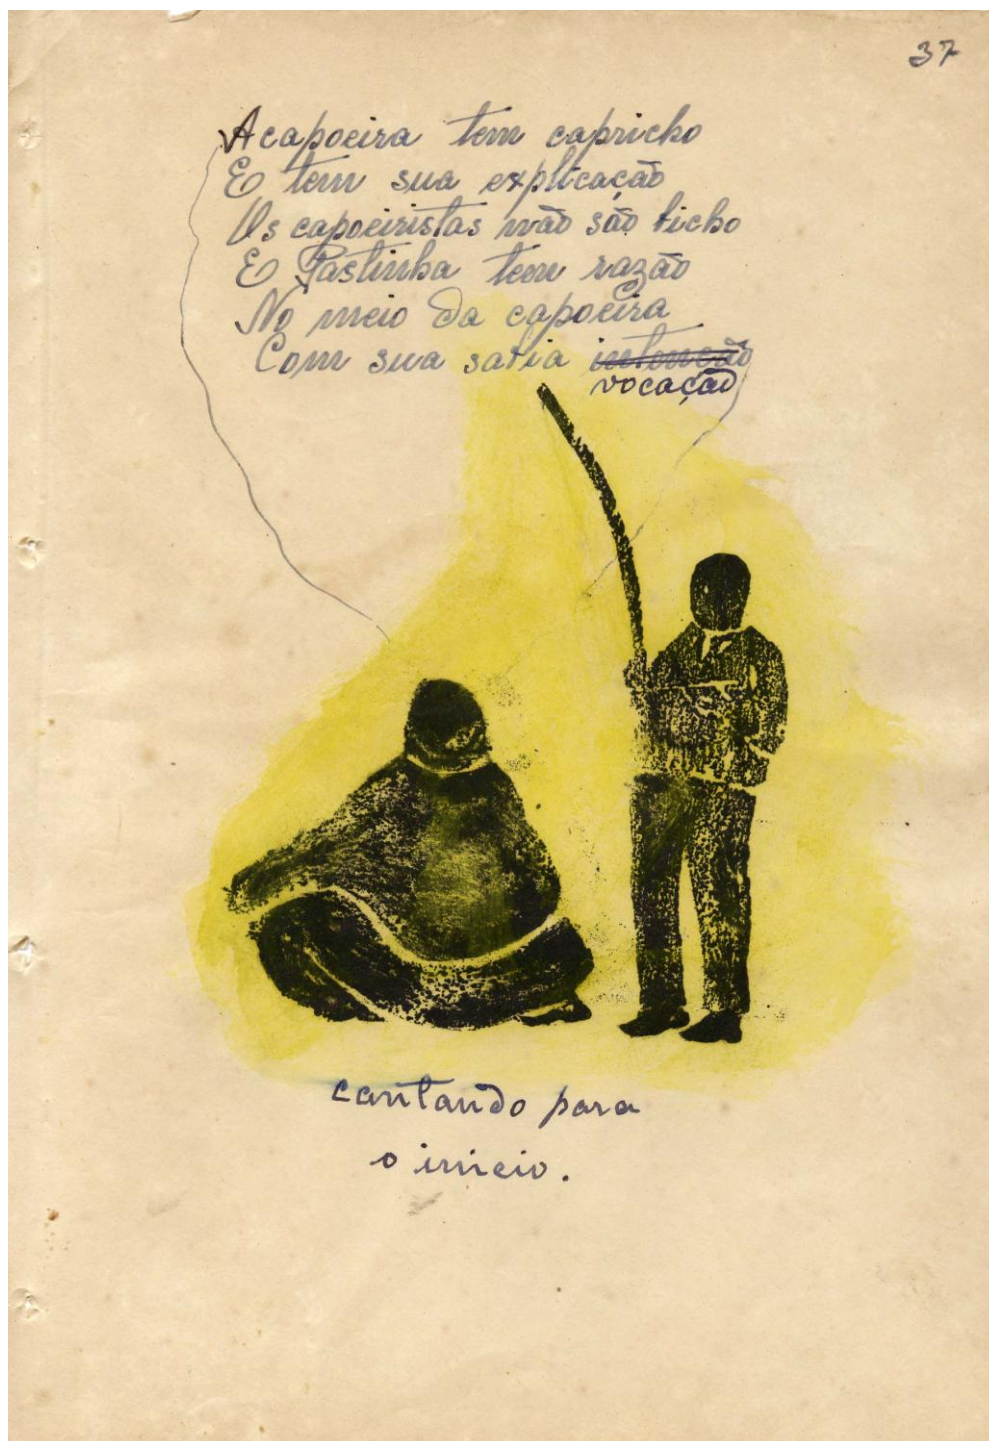 37
A capoeira tem capricho
E tem sua explicação
Os capoeiristas não são bicho
E Pastinha tem razão
No meio da capoeira
Com sua sabia intenção
vocação
cantando para
o inicio.